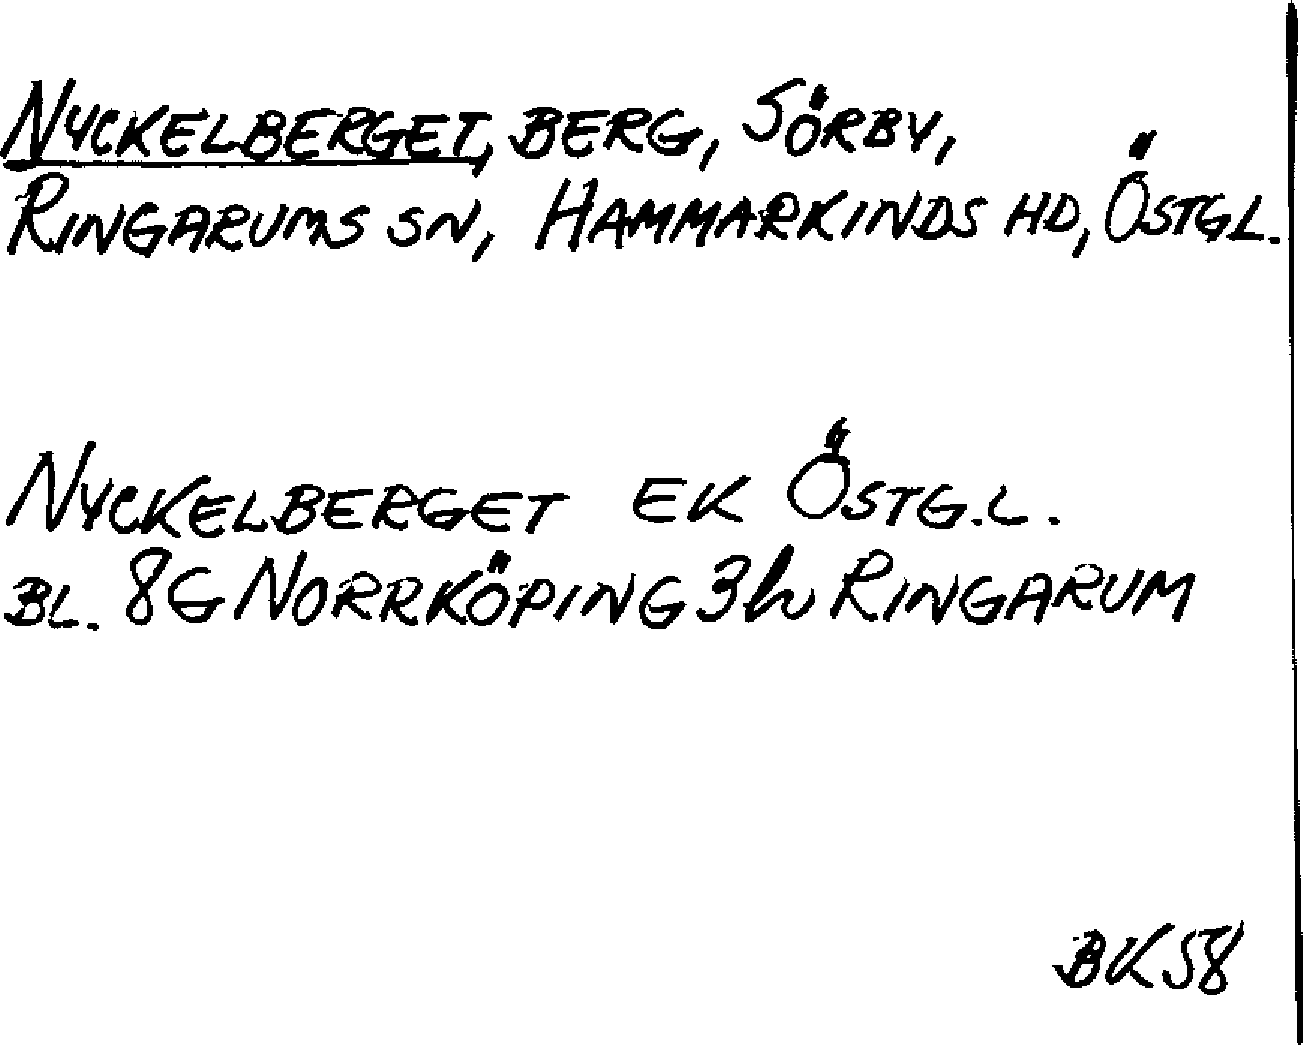 NYCKELBERGET, BERG, SÖRBY,
RINGARUMS SN, HAMMARKINDS HD, ÖSTGL.
NYCKELBERGET EK ÖSTG.L.
BL. 8G NORRKÖPING 3h RINGARUM
BK58